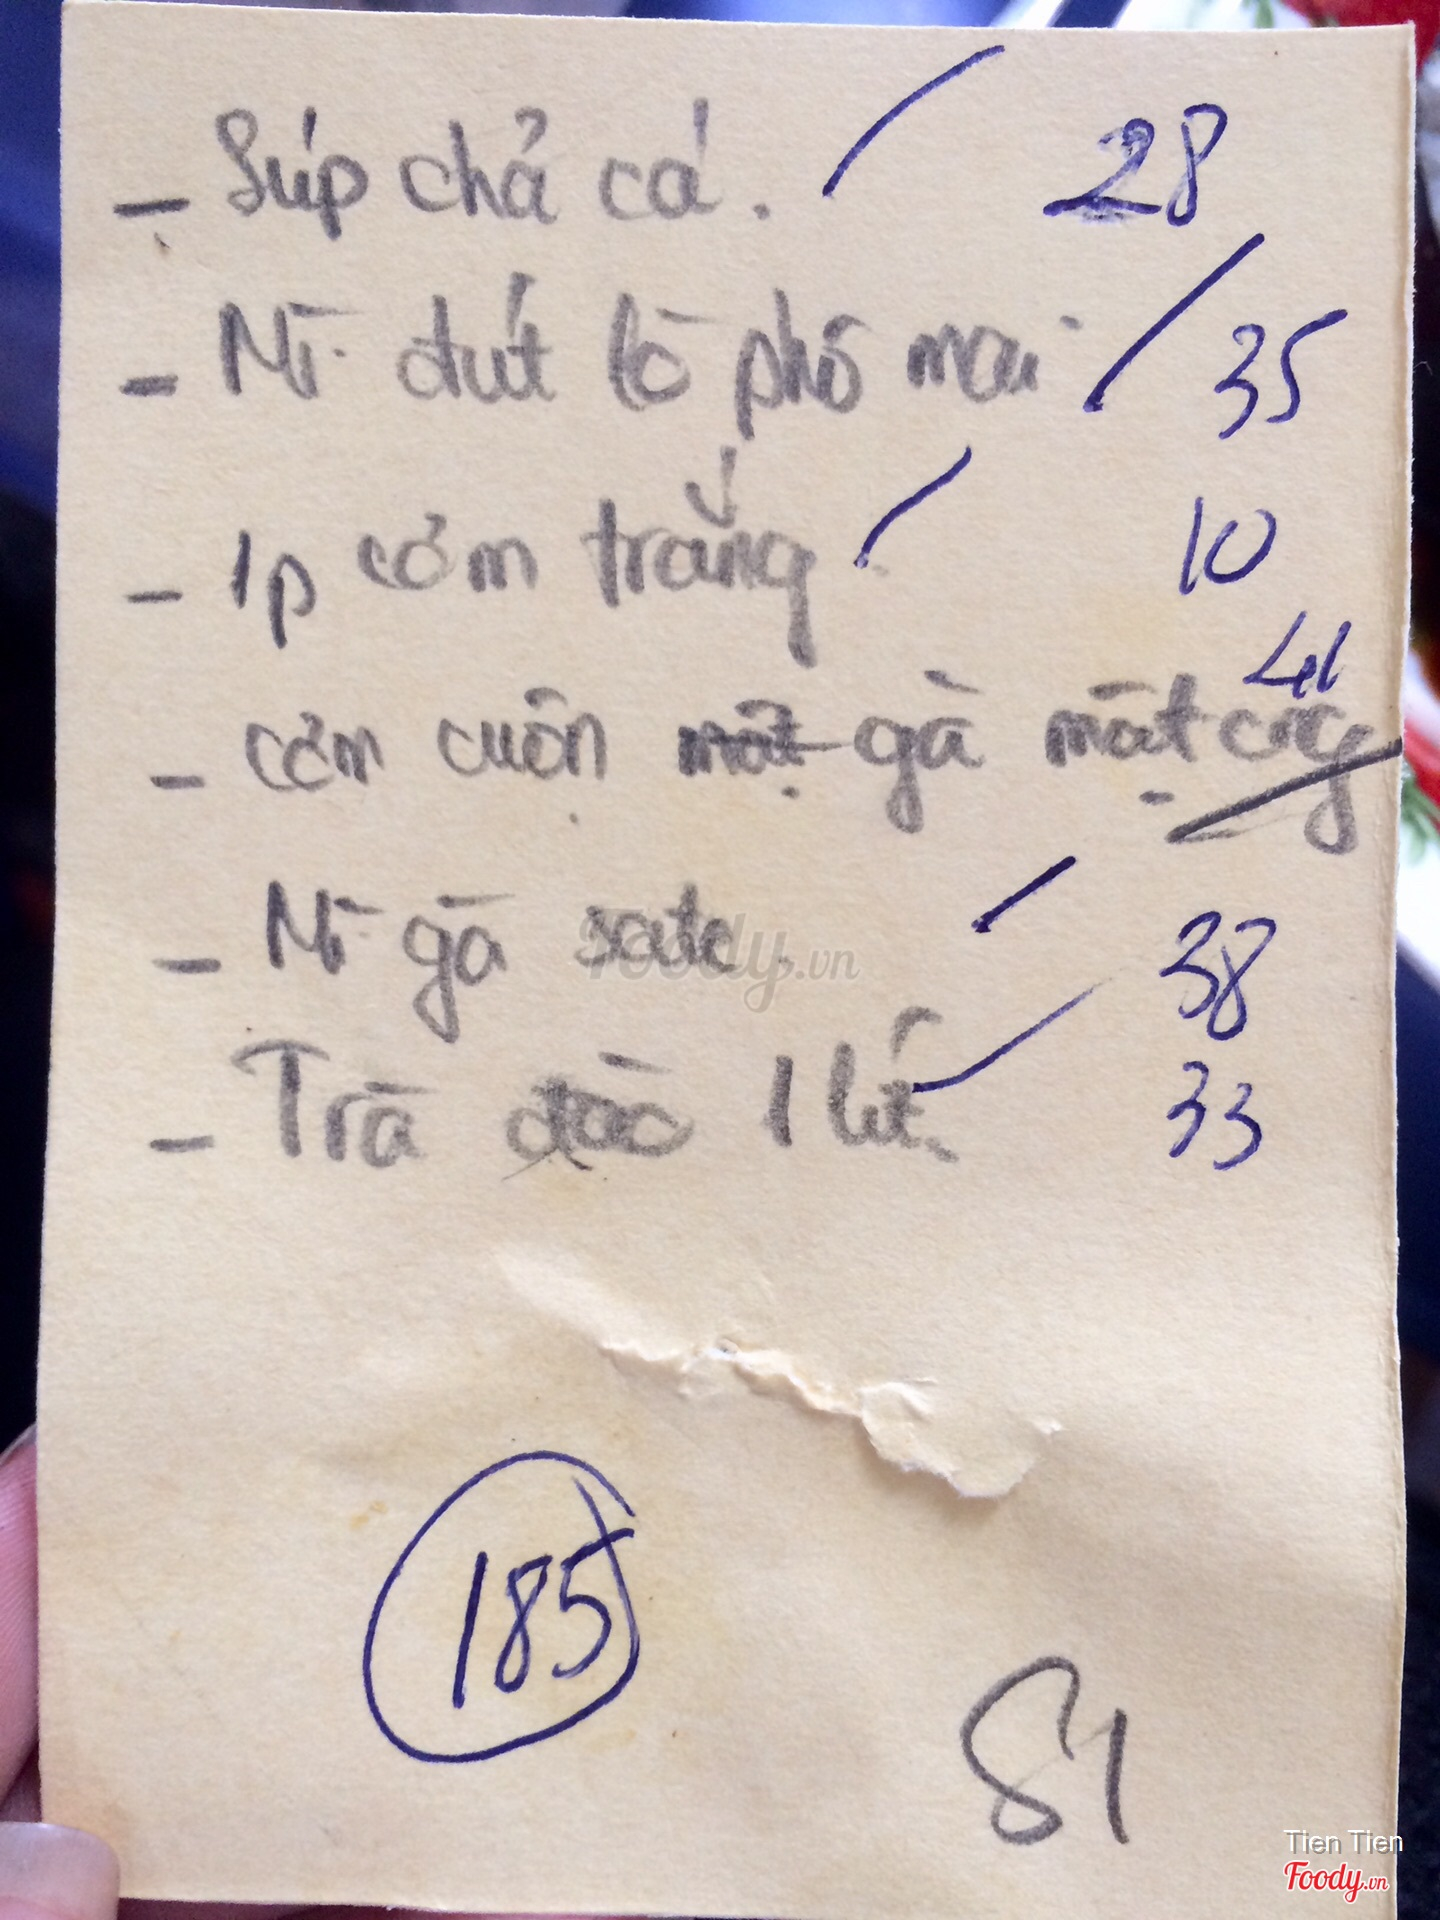 - Súp chả cá. 28
- Mì đút lò phô mai 35
- 1p cơm trắng 10
- cơm cuộn mật gà mật ong 41
- Mì gà sate. 38
- Trà đào 1 lít. 33
185
S1
Foody.vn
Tien Tien
Foody.vn